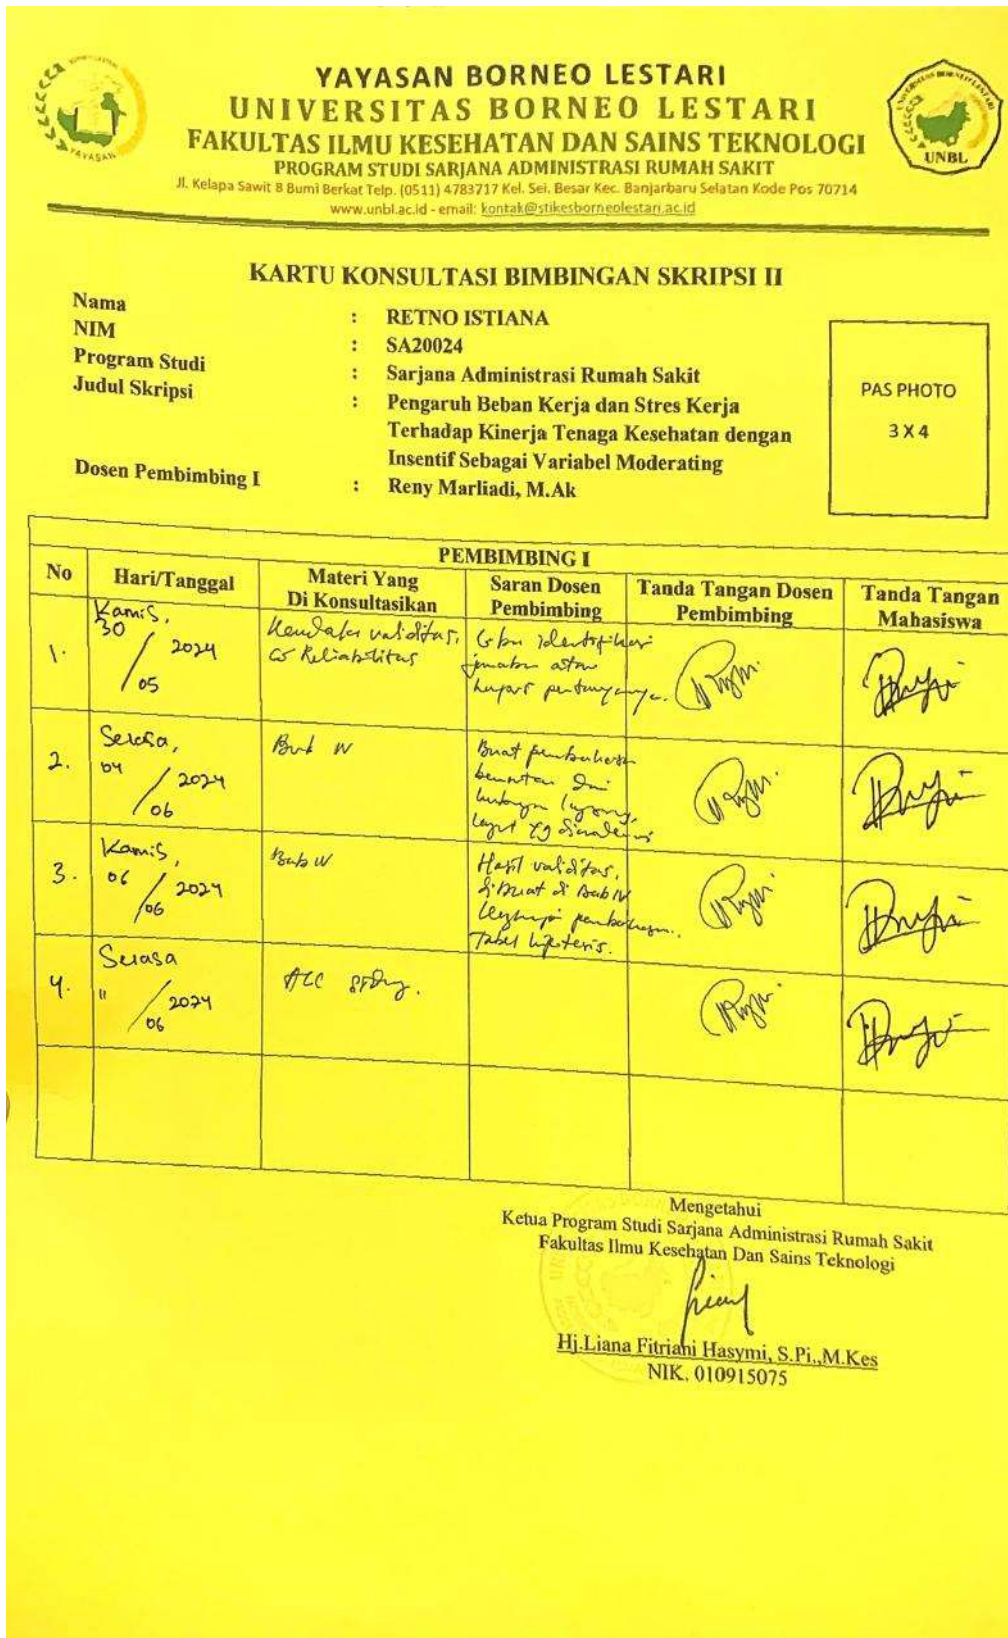 YAYASAN BORNEO LESTARI
UNIVERSITAS BORNEO LESTARI
FAKULTAS ILMU KESEHATAN DAN SAINS TEKNOLOGI
PROGRAM STUDI SARJANA ADMINISTRASI RUMAH SAKIT
Jl. Kelapa Sawit 8 Bumi Berkat Telp. (0511) 4783717 Kel. Sei. Besar Kec. Banjarbaru Selatan Kode Pos 70714
www.unbl.ac.id - email: kontak@stikesborneolestari.ac.id
YAYASAN
UNBL
KARTU KONSULTASI BIMBINGAN SKRIPSI II
Nama : RETNO ISTIANA
NIM : SA20024
Program Studi : Sarjana Administrasi Rumah Sakit
Judul Skripsi : Pengaruh Beban Kerja dan Stres Kerja
Terhadap Kinerja Tenaga Kesehatan dengan
Insentif Sebagai Variabel Moderating
Dosen Pembimbing I : Reny Marliadi, M.Ak
PAS PHOTO
3 X 4
PEMBIMBING I
No Hari/Tanggal Materi Yang Di Konsultasikan Saran Dosen Pembimbing Tanda Tangan Dosen Pembimbing Tanda Tangan Mahasiswa
1. Kamis, 30/05 2024 validitas, Reliabilitas identifikasi
2. Selasa, 04/06 2024 Bab IV Buat pembahasan
3. Kamis, 06/06 2024 Bab IV Hasil validitas, dibuat di Bab IV Tabel hipotesis.
4. Selasa 11/06 2024 ACC
Mengetahui
Ketua Program Studi Sarjana Administrasi Rumah Sakit
Fakultas Ilmu Kesehatan Dan Sains Teknologi
Hj.Liana Fitriani Hasymi, S.Pi.,M.Kes
NIK. 010915075